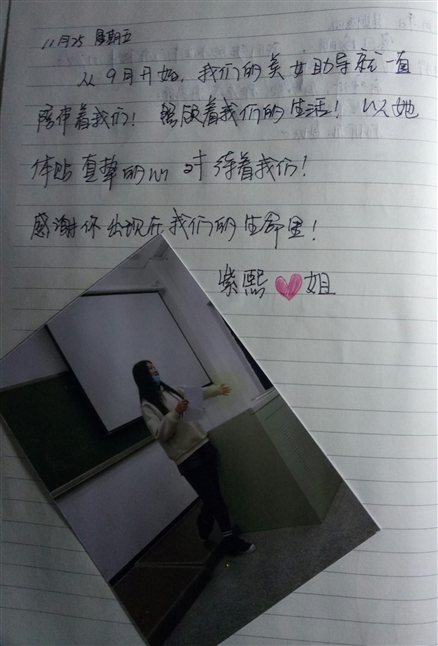 11月25 星期五
从9月开始，我们的美女助导就一直
陪伴着我们！照顾着我们的生活！以她
体贴真挚的心对待着我们！
感谢你出现在我们的生命里！
紫熙姐